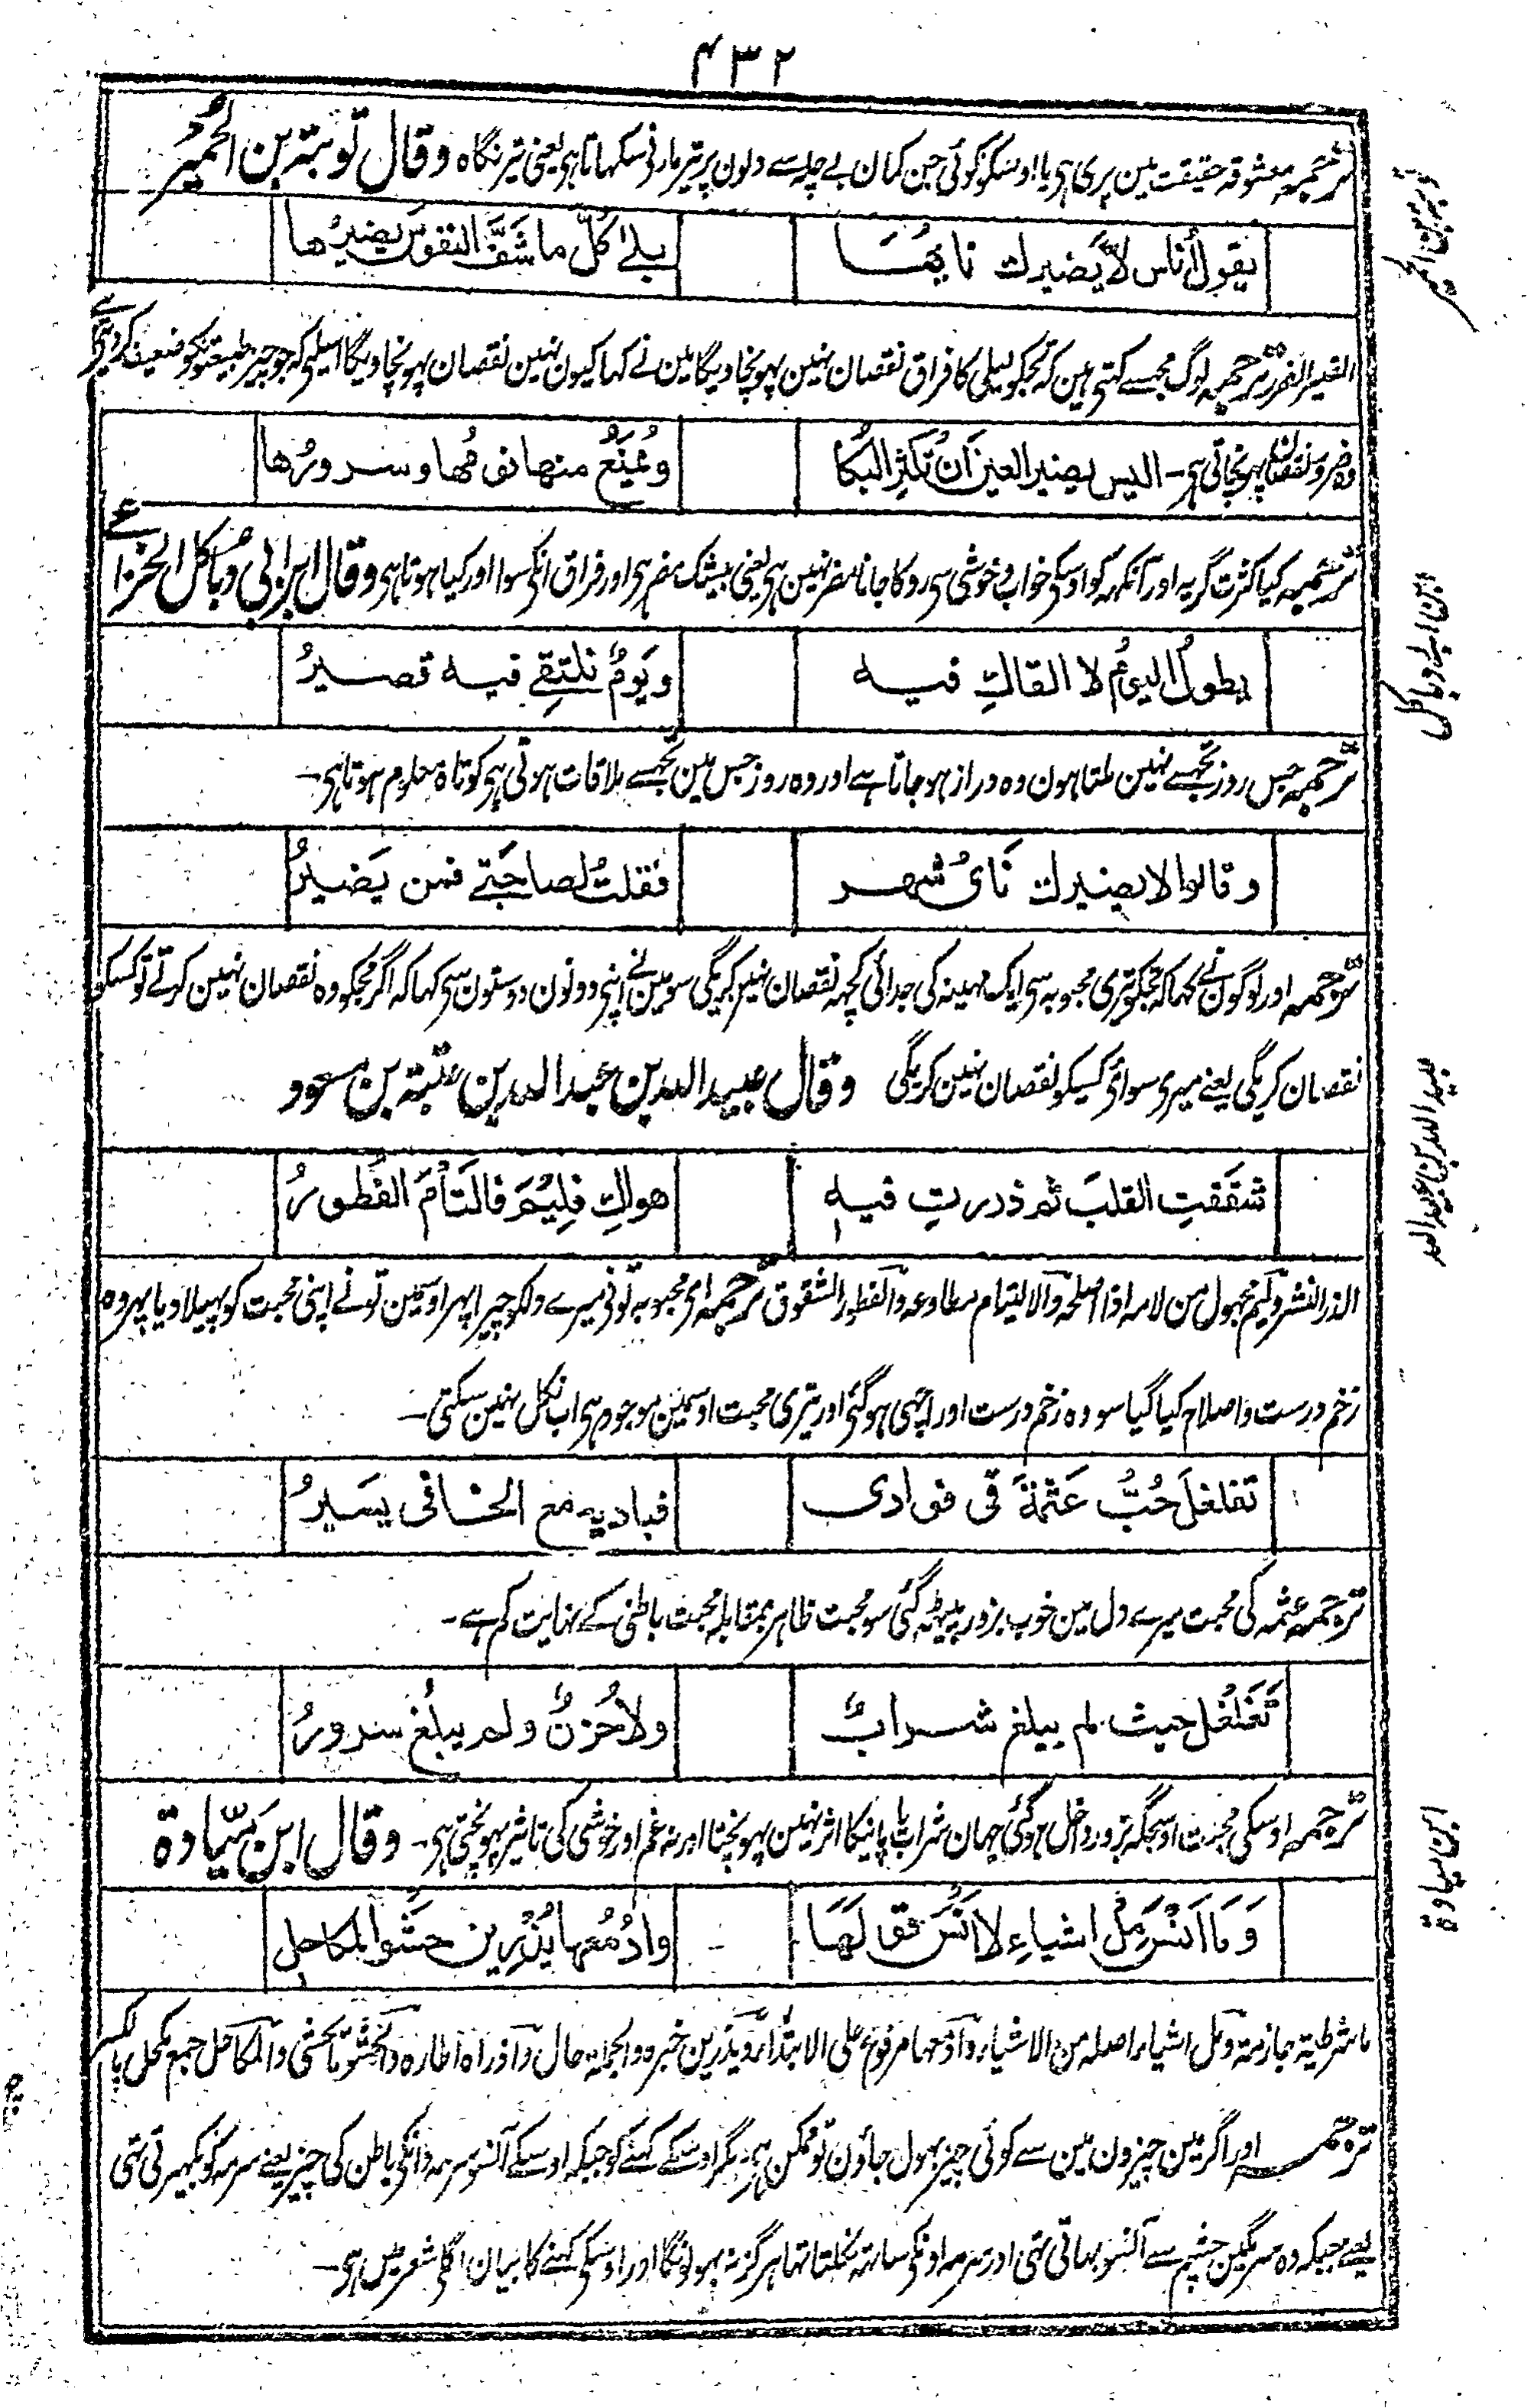 ۴۳۲
ترجمہ معشوقہ حقیقت مین پری ہی یا اوسکو کوئی جن کمان بے چلہ سے دلون پر تیر مارنی سکہاتا ہی یعنی تیر نگاہ وقال توبتہ بن الحُمیرُ
يقول اُناس لا يَضيرك نايُها
بلےٰ كلّ ما شَفَّ النفوسَ يضيرُها
الضیر الضرر ترجمہ لوگ مجہسے کہتی ہین کہ تجہکو لیلی کا فراق نقصان نہین پہونچاویگا مین نے کہا کیون نہین نقصان پہونچاویگا اسلیے کہ جو چیز طبیعتونکو ضعیف کر دیتی ہے
وہ ضرور نقصان پہونچاتی ہی۔ اليس يضير العينَ اَن تُكثِرَ البُكا
ويُمنَعُ منها نومُها وسرورُها
ترجمہ کیا کثرت گریہ اور آنکہہ کو اوسکی خواب و خوشی سی روکا جانا مضر نہین ہی یعنی بیشک مضر ہی اور فراق انکی سوا اور کیا ہوتا ہی وقال ابن ابی دُباکل الخزاعے
يطولُ اليومُ لا القاكِ فيه
ويَومٌ نلتقے فيه قصيرُ
ترجمہ جس روز تجہسے نہین ملتا ہون وہ دراز ہو جاتا ہے اور وہ روز جس مین تجہسے ملاقات ہوتی ہی کوتاہ معلوم ہوتا ہی۔
وقالوا لا يضيرك نَاىُ شهر
فقلتُ لصاحبَىَّ فمن يَضيرُ
ترجمہ اور لوگون نے کہا کہ تجہکو تیری محبوبہ سی ایک مہینہ کی جدائی کچہہ نقصان نہین کریگی سو مین نے اپنی دونون دوستون سی کہا کہ اگر مجہکو وہ نقصان نہین کرتے تو کسکو
نقصان کریگی یعنے میری سوای کسیکو نقصان نہین کریگی وقال عبید اللہ بن عبد اللہ بن عتبتہ بن مسعود
شققتِ القلبَ ثم ذررتِ فيهِ
هواكِ فلِيمَ فالتَأمَ الفُطورُ
الذر النشر ولیم مجہول من لامہ اذا اصلحہ والالتیام مطاوعہ والفطور الشقوق ترجمہ ای محبوبہ تونی میرے دلکو چیرا پہر اوسمین تونے اپنی محبت کو پہیلا دیا پہر وہ
زخم درست و اصلاح کیا گیا سو وہ زخم درست اور اچہی ہو گئی اور تیری محبت اوسمین موجود ہی اب نکل نہین سکتی۔
تغلغلَ حُبُّ عَثمَةَ فى فوادى
فباديه مع الخافى يسيرُ
ترجمہ عثمہ کی محبت میرے دل مین خوب بزور بیٹہہ گئی سو محبت ظاہر بمقابلہ محبت باطنی کے نہایت کم ہے۔
تَغَلغَلَ حيث لم يبلغ شرابٌ
ولا حُزنٌ ولم يبلُغ سرورُ
ترجمہ اوسکی محبت اوسجگہ بزور داخل ہو گئی جہان شراب یا پانیکا اثر نہین پہونچتا اور نہ غم اور خوشی کی تاثیر پہونچتی ہی۔ وقال ابن مَیّادۃ
وَمَا اَنسَ مِلْ اشياءِ لا اَنسَ قولَهَا
وادمُعُها يُذرِين حَشوَ المكاحلِ
ما شرطیۃ جازمۃ ومل اشیاء اصلہ من الاشیاء وادمعہا مرفوع علی الابتداء ویذرین خبرہ والجملۃ حال واذراہ اطارہ والحشو ما یحشی والمکاحل جمع مکحل بالکسر
ترجمہ اور اگر مین چیزون مین سے کوئی چیز بہول جاؤن تو ممکن ہی مگر اوسکے کہنے کو جبکہ اوسکے آنسو سرمہ دانکی باطن کی چیز یعنے سرمہ کو بکہیرتی تہی
یعنے جبکہ وہ سرمگین چشم سے آنسو بہاتی تہی اور سرمہ اونکی ساتہہ نکلتا تہا ہرگز نہ بہولونگا اور اوسکی کہنے کا بیان اگلی شعر مین ہی۔
توبہ بن الحمیر
ابن ابے دباکل
عبید اللہ بن عبد اللہ
ابن میادۃ